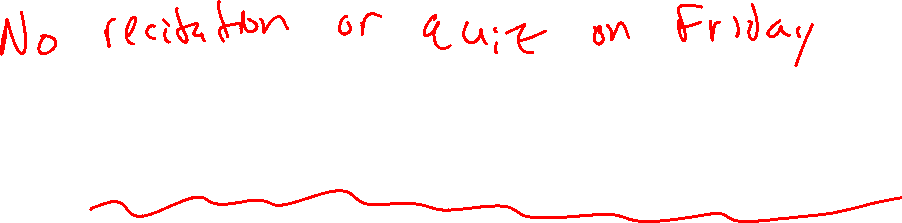 No recitation or quiz on Friday